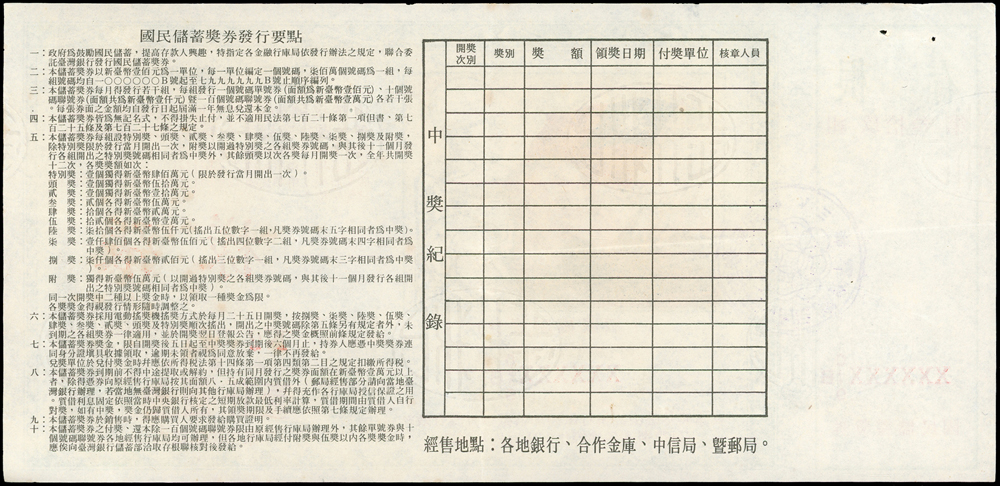 國民儲蓄獎券發行要點
一：政府為鼓勵國民儲蓄，提高存款人興趣，特指定各金融行庫局依發行辦法之規定，聯合委
託臺灣銀行發行國民儲蓄獎券。
二：本儲蓄獎券以新臺幣壹佰元為一單位，每一單位編定一個號碼，柒佰萬個號碼為一組，每
組號碼均自一〇〇〇〇〇〇Ｂ號起至七九九九九九九Ｂ號止順序編列。
三：本儲蓄獎券每月得發行若干組，每組發行一個號碼單號券（面額為新臺幣壹佰元）、十個號
碼聯號券（面額共為新臺幣壹仟元）暨一百個號碼聯號券（面額共為新臺幣壹萬元）各若干張
。每張券面之金額均自發行日起屆滿一年無息兌還本金。
四：本儲蓄獎券為無記名式，不得掛失止付，並不適用民法第七百二十條第一項但書、第七
百二十五條及第七百二十七條之規定。
五：本儲蓄獎券每組設特別獎、頭獎、貳獎、叁獎、肆獎、伍獎、陸獎、柒獎、捌獎及附獎，
除特別獎限於發行當月開出一次，附獎以開過特別獎之各組獎券號碼，與其後十一個月發
行各組開出之特別獎號碼相同者為中獎外，其餘頭獎以次各獎每月開獎一次，全年共開獎
十二次，各獎獎額如次：
特別獎：壹個獨得新臺幣肆佰萬元（限於發行當月開出一次）。
頭　獎：壹個獨得新臺幣伍拾萬元。
貳　獎：壹個獨得新臺幣壹拾萬元。
叁　獎：貳個各得新臺幣伍萬元。
肆　獎：拾個各得新臺幣貳萬元。
伍　獎：拾貳個各得新臺幣壹萬元。
陸　獎：柒拾個各得新臺幣伍仟元（搖出五位數字一組，凡獎券號碼末五字相同者為中獎）。
柒　獎：壹仟肆佰個各得新臺幣伍佰元（搖出四位數字二組，凡獎券號碼末四字相同者為
中獎）。
捌　獎：柒仟個各得新臺幣貳佰元（搖出三位數字一組，凡獎券號碼末三字相同者為中獎
）。
附　獎：獨得新臺幣伍萬元（以開過特別獎之各組獎券號碼，與其後十一個月發行各組開
出之特別獎號碼相同者為中獎）。
同一次開獎中二種以上獎金時，以領取一種獎金為限。
各獎獎金得視發行情形隨時調整之。
六：本儲蓄獎券採用電動搖獎機搖獎方式於每月二十五日開獎，按捌獎、柒獎、陸獎、伍獎、
肆獎、叁獎、貳獎、頭獎及特別獎順次搖出，開出之中獎號碼除第五條另有規定者外，未
到期之各組獎券一律適用，並於開獎翌日登報公告，應得之獎金概照前條規定發給。
七：本儲蓄獎券獎金，限自開獎後五日起至中獎獎券到期後六個月止，持券人應憑中獎獎券連
同身分證填具收據領取，逾期未領者視為同意放棄，一律不再發給。
兌獎單位於兌付獎金時并應依所得稅法第十四條第一項第四類第二目之規定扣繳所得稅。
八：本儲蓄獎券到期前不得中途提取或解約，但持有同月發行之獎券面額在新臺幣壹萬元以上
者，除得憑券向原經售行庫局按其面額八．五成範圍內質借外（郵局經售部分請向當地之臺
灣銀行辦理，若當地無臺灣銀行則向其他行庫局辦理），并得充作各行庫局授信保證之用
。質借利息固定依照當時中央銀行核定之短期放款最低利率計算，質借期間由質借人自行
對獎，如有中獎，獎金仍歸質借人所有，其領獎期限及手續應依照第七條規定辦理。
九：本儲蓄獎券於銷售時，得應購買人要求發給購買證明。
十：本儲蓄獎券之付獎、還本除一百個號碼聯號券限由原經售行庫局辦理外，其餘單號券與十
個號碼聯號券各地經售行庫局均可辦理，但各地行庫局經付附獎與伍獎以內各獎獎金時，
應俟向臺灣銀行儲蓄部洽取存根聯核對後發給。
開獎次別　獎別　獎　額　領獎日期　付獎單位　核章人員
中
獎
紀
錄
經售地點：各地銀行、合作金庫、中信局、暨郵局。